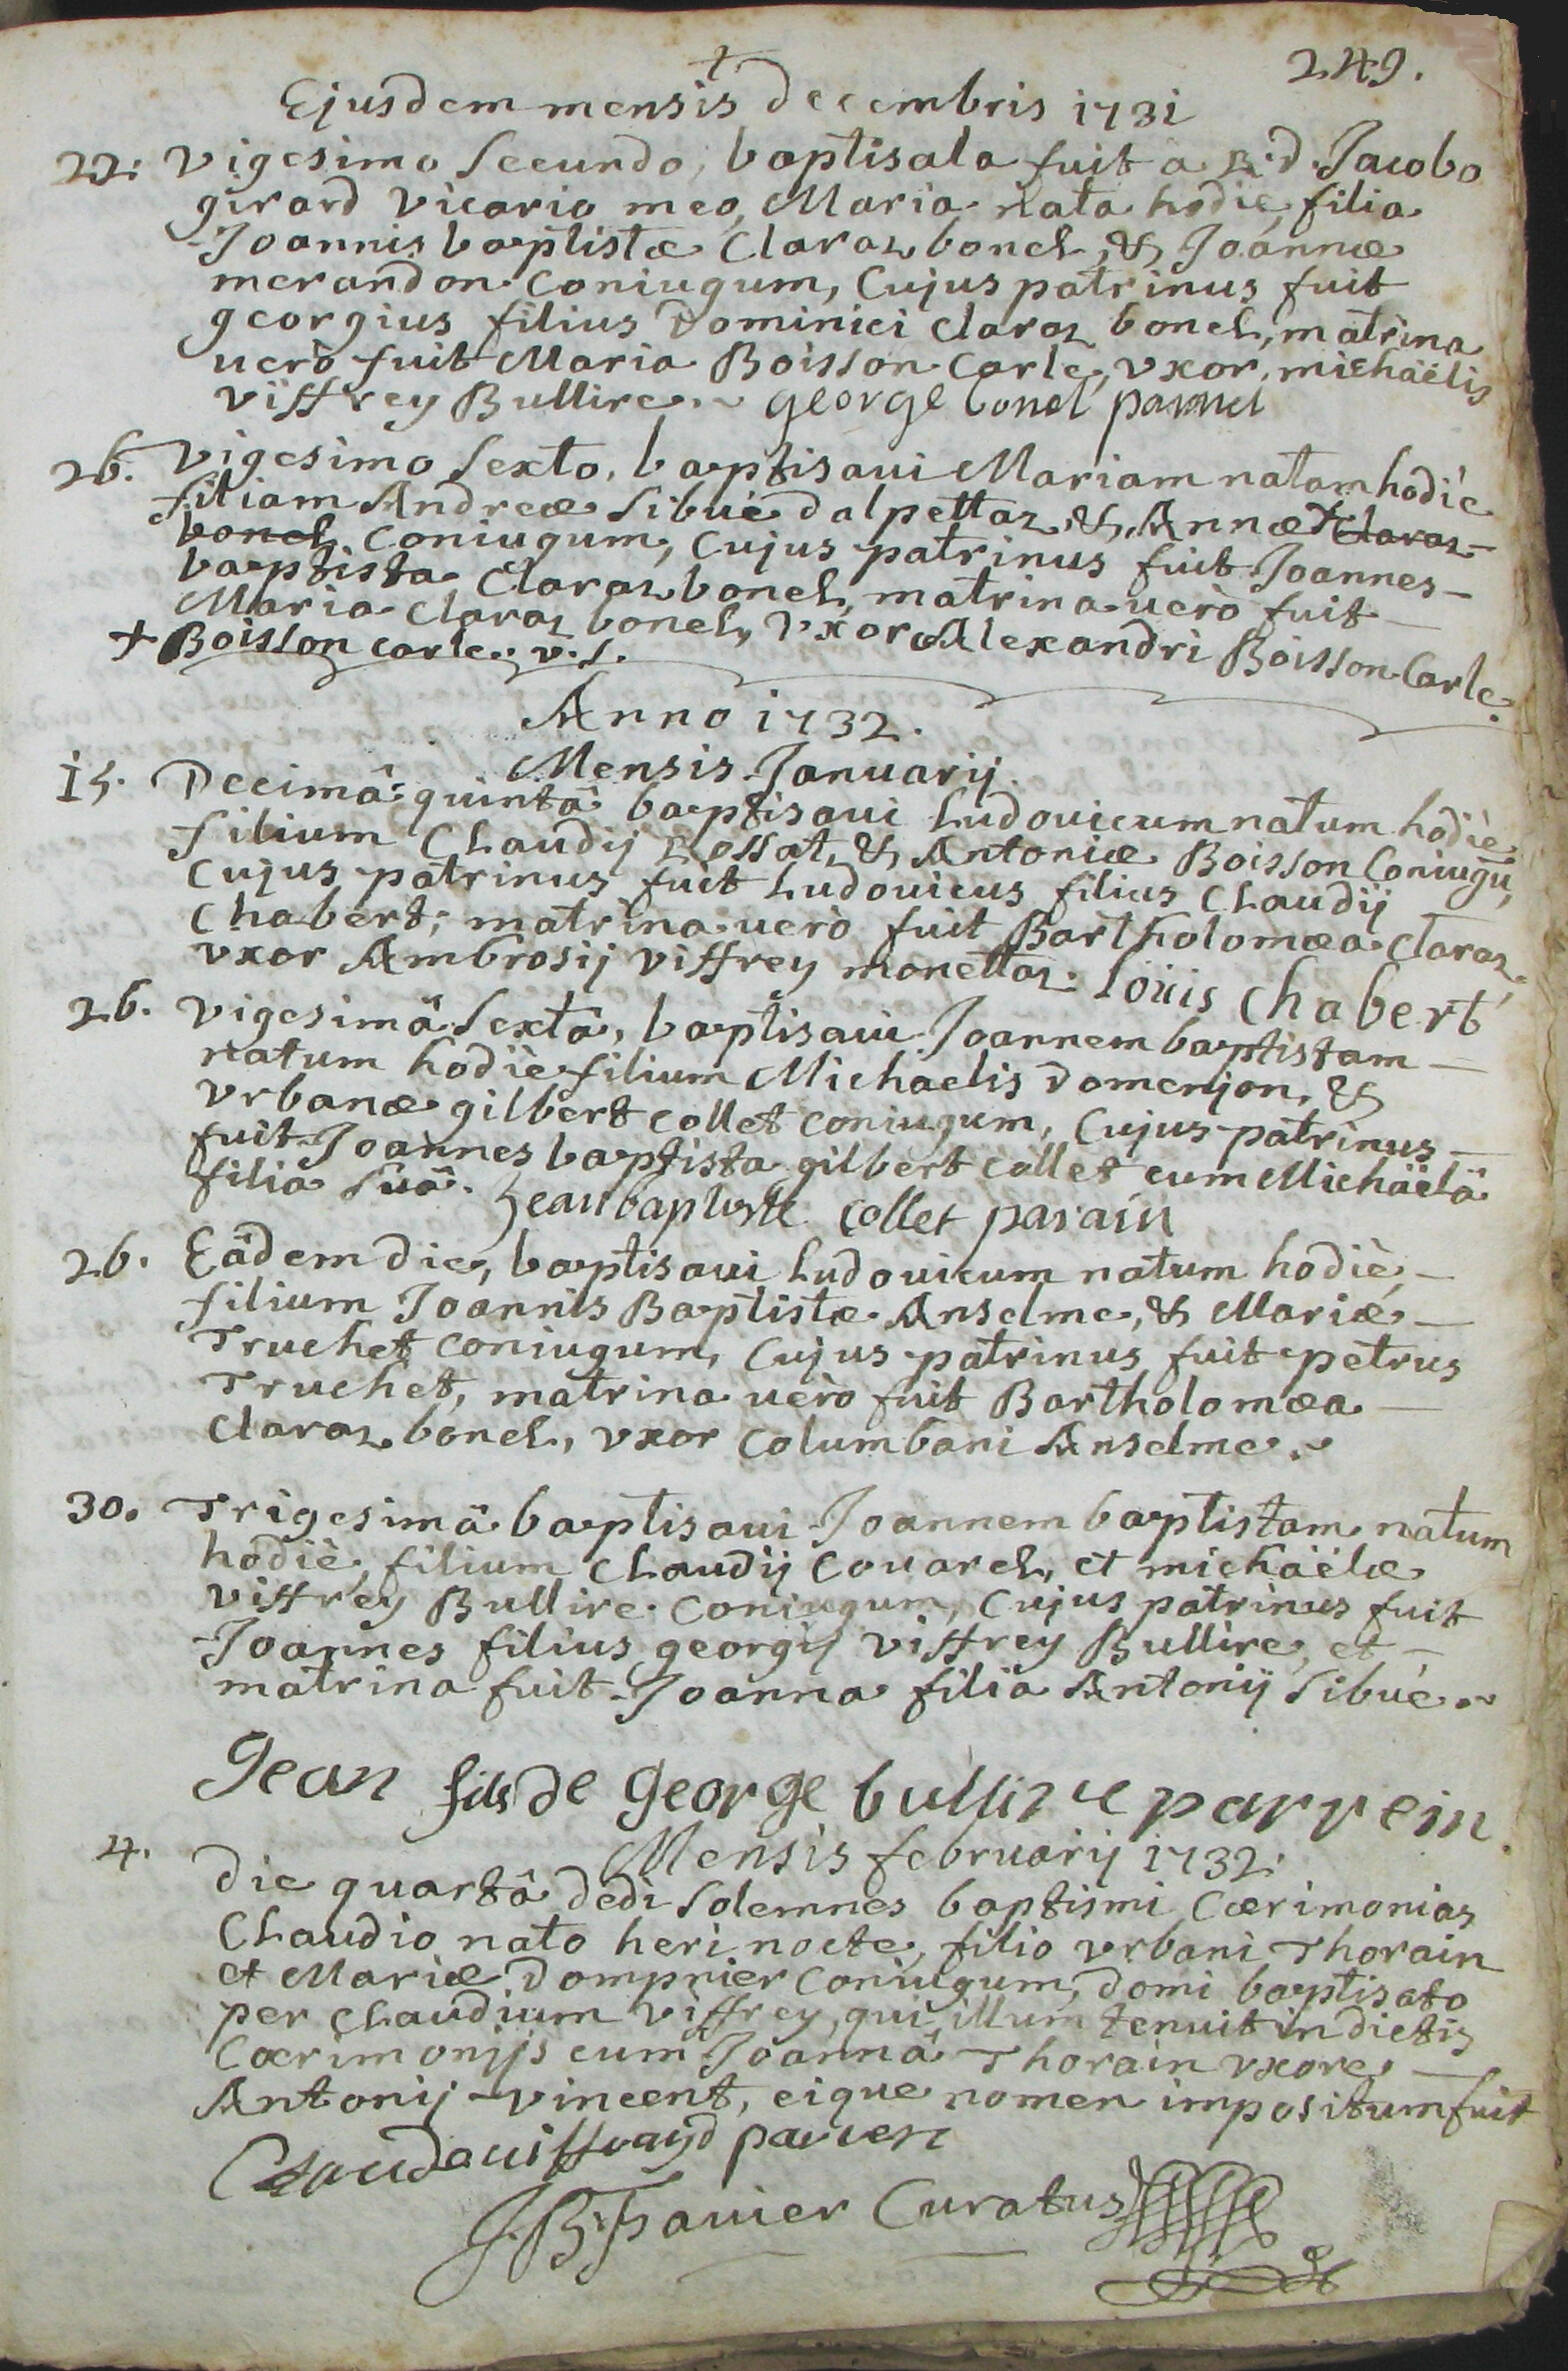 249.
+
Ejusdem mensis Decembris 1731
22. Vigesimo Secundo, baptisata fuit a R.d Jacobo
girard Vicario meo, Maria nata hodie, filia
Joannis baptistæ Claraz bonel, & Joannæ
merandon Coniugum, Cujus patrinus fuit
georgius filius Dominici Claraz bonel, matrina
uerò fuit Maria Boisson Carle, Vxor michäelis
Viffrey Bullire. george bonel
26. Vigesimo Sexto, baptisaui Mariam natam hodiè
filiam Andreæ Sibué dalpettaz, & Annæ + Claraz
bonel Coniugum, Cujus patrinus fuit Joannes
baptista Claraz bonel, matrina uerò fuit
Maria Claraz bonel, Vxor Alexandri Boisson Carle.
+ Boisson carle. v. s.
Anno 1732.
Mensis Januarij.
15. Decimâ quintâ baptisaui Ludouicum natum hodiè
filium Claudij Rossat, & Antoniæ Boisson Coniugū,
Cujus patrinus fuit Ludouicus filius Claudij
Chabert; matrina uerò fuit Bartholomæa Claraz,
vxor Ambrosij Viffrey monettaz. Loüis Chabert
26. Vigesimâ Sextâ, baptisaui Joannem baptistam
natum hodiè filium Michaelis Domenjon, &
Vrbanæ gilbert collet coniugum, Cujus patrinus
fuit Joannes baptista gilbert collet cum Michäelâ
filiâ Suâ. Jean baptiste collet parain
26. Eâdem die, baptisaui Ludouicum natum hodiè,
filium Joannis Baptistæ Anselme, & Mariæ
Truchet coniugum, Cujus patrinus fuit petrus
Truchet, matrina uerò fuit Bartholomæa
Claraz bonel, vxor Columbani Anselme.
30. Trigesimâ baptisaui Joannem baptistam natum
hodiè, filium Claudij Couarel, et michäelæ
Viffrey Bullire Coniugum, Cujus patrinus fuit
Joannes filius georgij Viffrey Bullire, et
matrina fuit Joanna filia Antonij Sibué.
Jean fils de George bullire parrein.
Mensis februarij 1732.
4. Die quartâ dedi Solemnes baptismi Cærimonias
Claudio nato heri nocte, filio Vrbani Thorain
et Mariæ Dompnier Coniugum, domi baptisato
per Claudium Viffrey, qui illum tenuit in dictis
Cærimonijs cum Joannâ Thorain vxore
Antonij Vincent, eique nomen impositum fuit
Claude uiffrayd
J. B. Favier Curatus